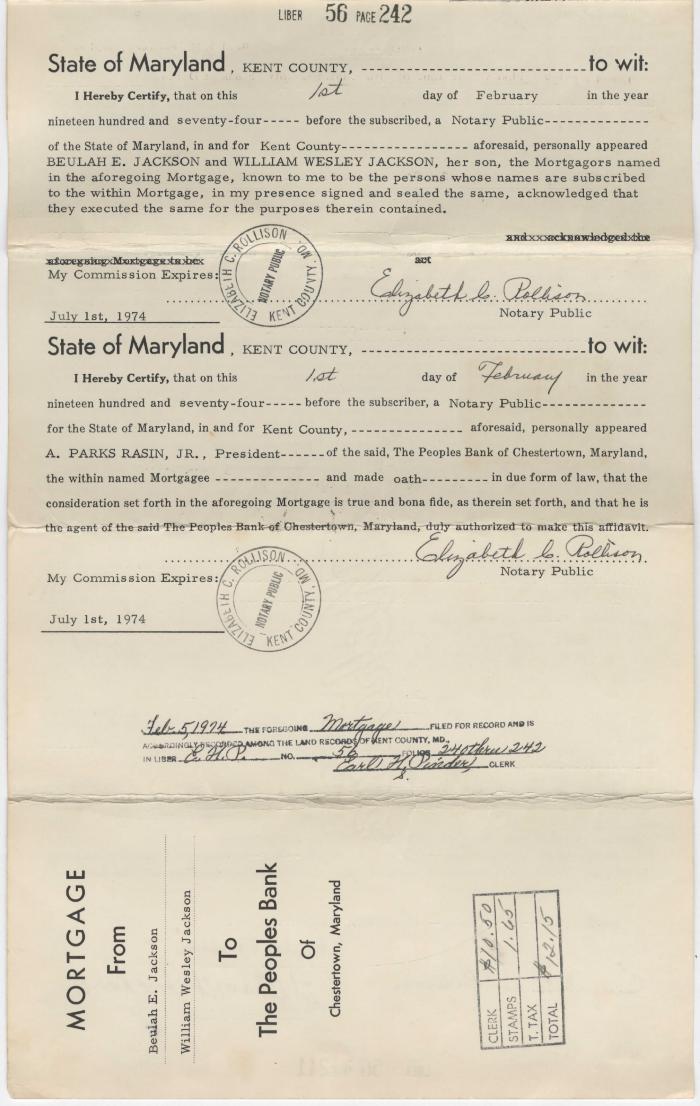 LIBER 56 PAGE 242
State of Maryland, KENT COUNTY, ------------------------------to wit:
I Hereby Certify, that on this 1st day of February in the year
nineteen hundred and seventy-four----- before the subscribed, a Notary Public--------------
of the State of Maryland, in and for Kent County----------------- aforesaid, personally appeared
BEULAH E. JACKSON and WILLIAM WESLEY JACKSON, her son, the Mortgagors named
in the aforegoing Mortgage, known to me to be the persons whose names are subscribed
to the within Mortgage, in my presence signed and sealed the same, acknowledged that
they executed the same for the purposes therein contained.
and acknowledged the
aforegoing Mortgage to be act
My Commission Expires:
ELIZABETH C. ROLLISON
NOTARY PUBLIC
KENT COUNTY, MD.
Elizabeth C. Rollison
July 1st, 1974 Notary Public
State of Maryland, KENT COUNTY, ------------------------------to wit:
I Hereby Certify, that on this 1st day of February in the year
nineteen hundred and seventy-four----- before the subscriber, a Notary Public--------------
for the State of Maryland, in and for Kent County, --------------- aforesaid, personally appeared
A. PARKS RASIN, JR., President------of the said, The Peoples Bank of Chestertown, Maryland,
the within named Mortgagee -------------- and made oath--------- in due form of law, that the
consideration set forth in the aforegoing Mortgage is true and bona fide, as therein set forth, and that he is
the agent of the said The Peoples Bank of Chestertown, Maryland, duly authorized to make this affidavit.
Elizabeth C. Rollison
My Commission Expires: Notary Public
ELIZABETH C. ROLLISON
NOTARY PUBLIC
KENT COUNTY, MD.
July 1st, 1974
Feb. 5, 1974 THE FOREGOING Mortgage FILED FOR RECORD AND IS
ACCORDINGLY RECORDED AMONG THE LAND RECORDS OF KENT COUNTY, MD.
IN LIBER E.H.P. NO. 56 FOLIOS 240 thru 242
Earl H. Pinder, CLERK
S.
MORTGAGE
From
Beulah E. Jackson
William Wesley Jackson
To
The Peoples Bank
Of
Chestertown, Maryland
CLERK $10.50
STAMPS 1.65
T. TAX
TOTAL $12.15